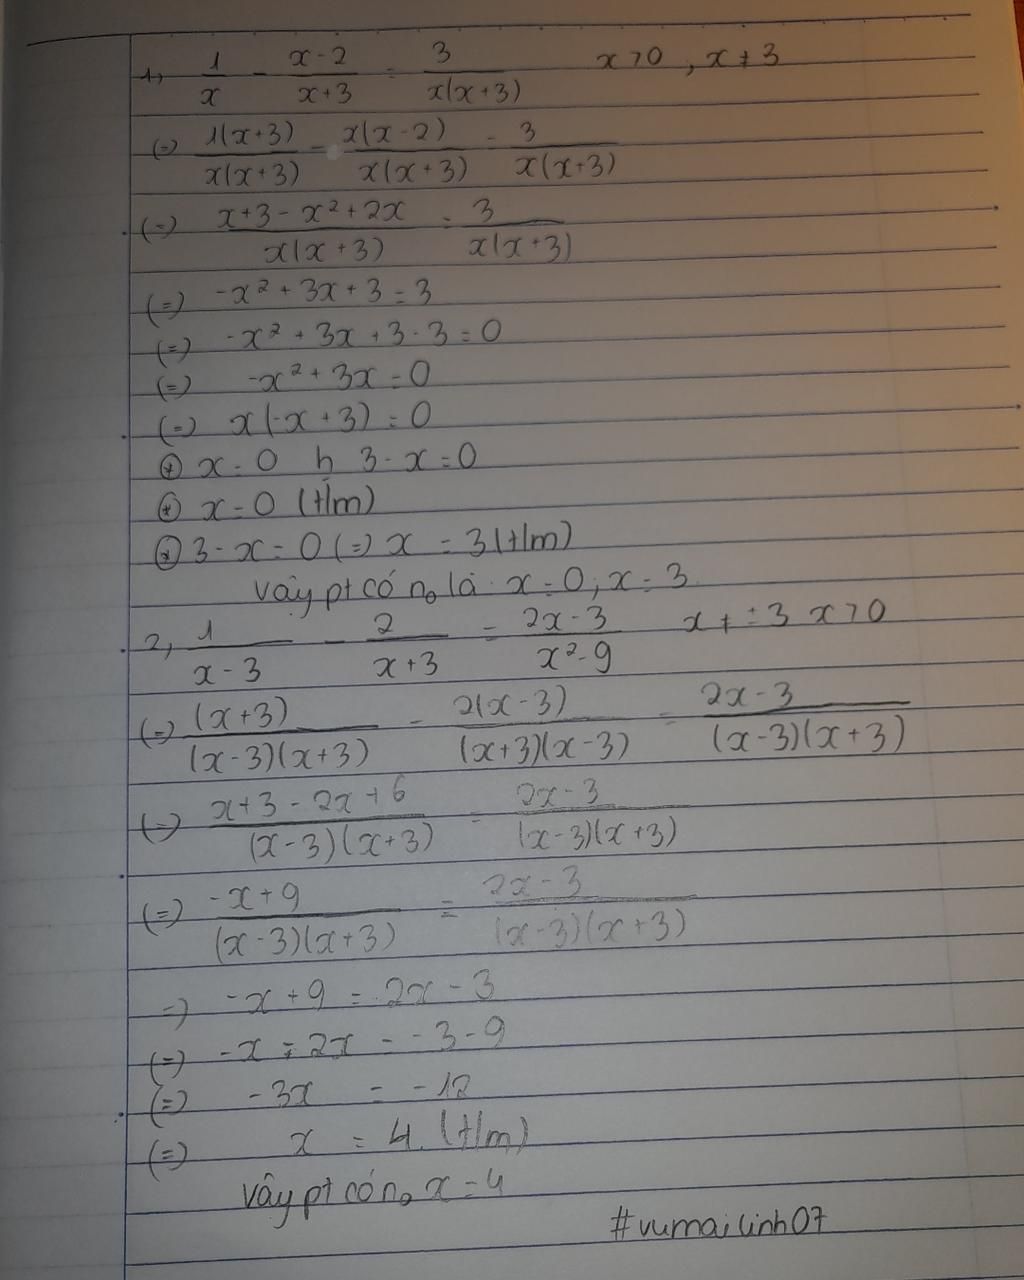 1, 1/x - (x-2)/(x+3) = 3/(x(x+3)) x>0, x≠3
(=) 1(x+3)/(x(x+3)) - x(x-2)/(x(x+3)) = 3/(x(x+3))
(=) (x+3-x²+2x)/(x(x+3)) = 3/(x(x+3))
(=) -x²+3x+3=3
(=) -x²+3x+3-3=0
(=) -x²+3x=0
(=) x(-x+3)=0
⊕ x=0 h 3-x=0
⊕ x=0 (t/m)
⊕ 3-x=0 (=) x=3 (t/m)
Vậy pt có n₀ là x=0; x=3
2, 1/(x-3) - 2/(x+3) = (2x-3)/(x²-9) x≠±3 x>0
(=) (x+3)/((x-3)(x+3)) - 2(x-3)/((x+3)(x-3)) = (2x-3)/((x-3)(x+3))
(=) (x+3-2x+6)/((x-3)(x+3)) = (2x-3)/((x-3)(x+3))
(=) (-x+9)/((x-3)(x+3)) = (2x-3)/((x-3)(x+3))
=) -x+9=2x-3
(=) -x-2x=-3-9
(=) -3x = -12
(=) x = 4 (t/m)
Vậy pt có n₀ x=4
#vumailinh07